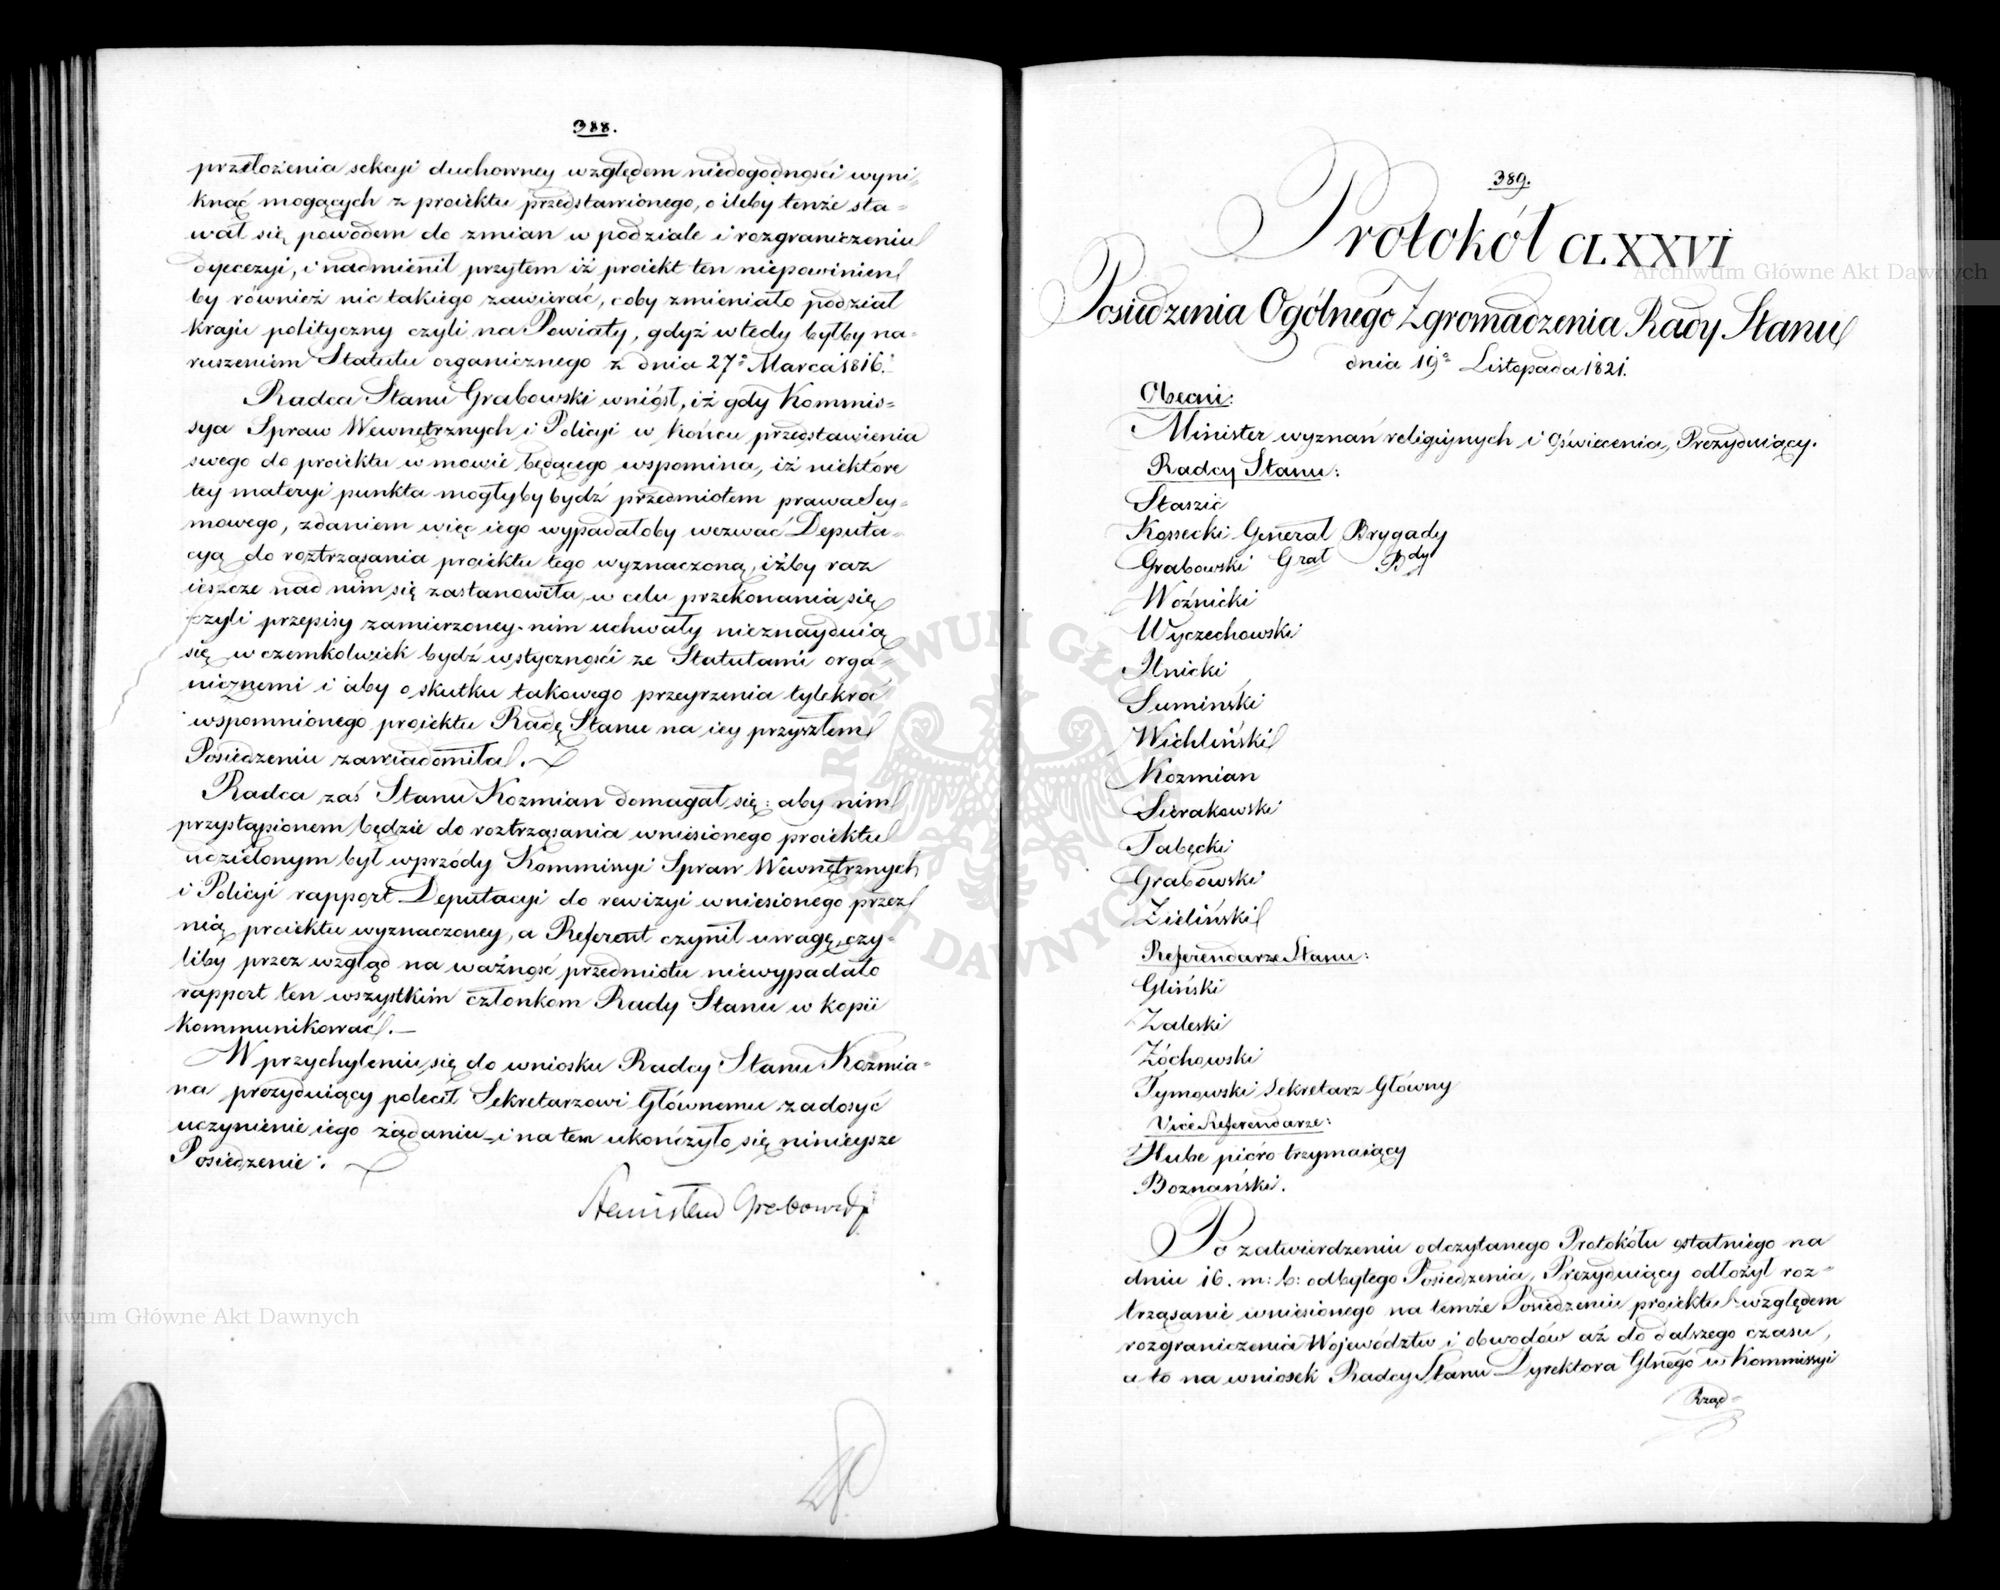 388.
przełożenia sekcyi duchowney względem niedogodności wyni-
knąć mogących z proiektu przedstawionego, o ileby tenże sta-
wał się powodem do zmian w podziale i rozgraniczeniu
dyecezyi, i nadmienił przytem iż proiekt ten niepowinien
by również nic takiego zawierać, coby zmieniało podział
kraju polityczny czyli na Powiaty, gdyż wtedy byłby na-
ruszeniem Statutu organicznego z dnia 27º Marca 1816.
Radca Stanu Grabowski wniósł, iż gdy Kommis-
sya Spraw Wewnętrznych i Policyi w końcu przedstawienia
swego do proiektu w mowie będącego wspomina, iż niektóre
tey materyi punkta mogłyby bydź przedmiotem prawa Sey-
mowego, zdaniem więc iego wypadałoby wezwać Deputa-
cyą do roztrząsania proiektu tego wyznaczoną, iżby raz
ieszcze nad nim się zastanowiła, w celu przekonania się
czyli przepisy zamierzoney nim uchwały nieznayduią
się w czemkolwiek bydź w styczności ze Statutami orga-
nicznemi i aby o skutku takowego przeyrzenia tylekroć
wspomnionego proiektu Radę Stanu na iey przyszłem
Posiedzeniu zawiadomiła.
Radca zaś Stanu Kozmian domagał się: aby nim
przystąpionem będzie do roztrząsania wniesionego proiektu
udzielonym był wprzódy Kommissyi Spraw Wewnętrznych
i Policyi rapport Deputacyi do rewizyi wniesionego przez
nią proiektu wyznaczoney, a Referent czynił uwagę, czy-
liby przez wzgląd na ważność przedmiotu niewypadało
rapport ten wszystkim członkom Rady Stanu w kopii
kommunikować.
W przychyleniu się do wniosku Radcy Stanu Kozmia-
na prezyduiący polecił Sekretarzowi Głównemu zadosyć
uczynienie iego żądaniu i na tem ukończyło się ninieysze
Posiedzenie.
Stanisław Grabowski
389.
Protokół CLXXVI
Posiedzenia Ogólnego Zgromadzenia Rady Stanu
dnia 19º Listopada 1821.
Obecni:
Minister wyznań religijnych i Oświecenia, Prezyduiący.
Radcy Stanu:
Staszic
Kossecki Generał Brygady
Grabowski Grał Bdy
Woźnicki
Wyczechowski
Ilnicki
Sumiński
Wichliński
Kozmian
Sierakowski
Tabęcki
Grabowski
Zieliński
Referendarze Stanu:
Gliński
Zaleski
Żóchowski
Tymowski Sekretarz Główny
Vice Referendarze:
Hube pióro trzymaiący
Boznański.
Po zatwierdzeniu odczytanego Protokółu ostatniego na
dniu 16. m: b: odbytego Posiedzenia, Prezyduiący odłożył roz-
trząsanie wniesionego na temże Posiedzeniu proiektu względem
rozgraniczenia Województw i obwodów aż do dalszego czasu,
a to na wniosek Radcy Stanu Dyrektora Glnego w Kommissyi
Rząd-
Archiwum Główne Akt Dawnych
Archiwum Główne Akt Dawnych
ARCHIWUM GŁÓWNE AKT DAWNYCH